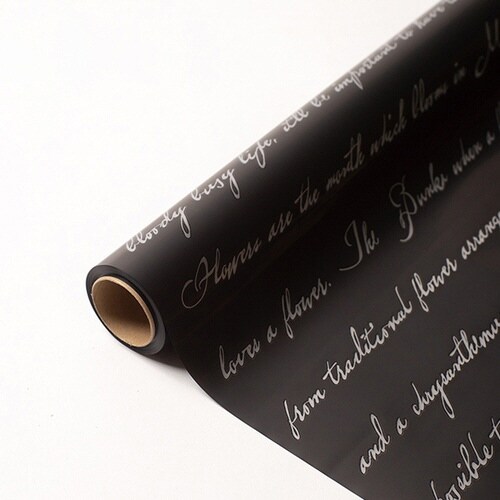 bloody busy life, it'll be important to have
Flowers are the month which blooms in
loves a flower. The Dunke when a
from traditional flower arrang
and a chrysanthemu
possible t